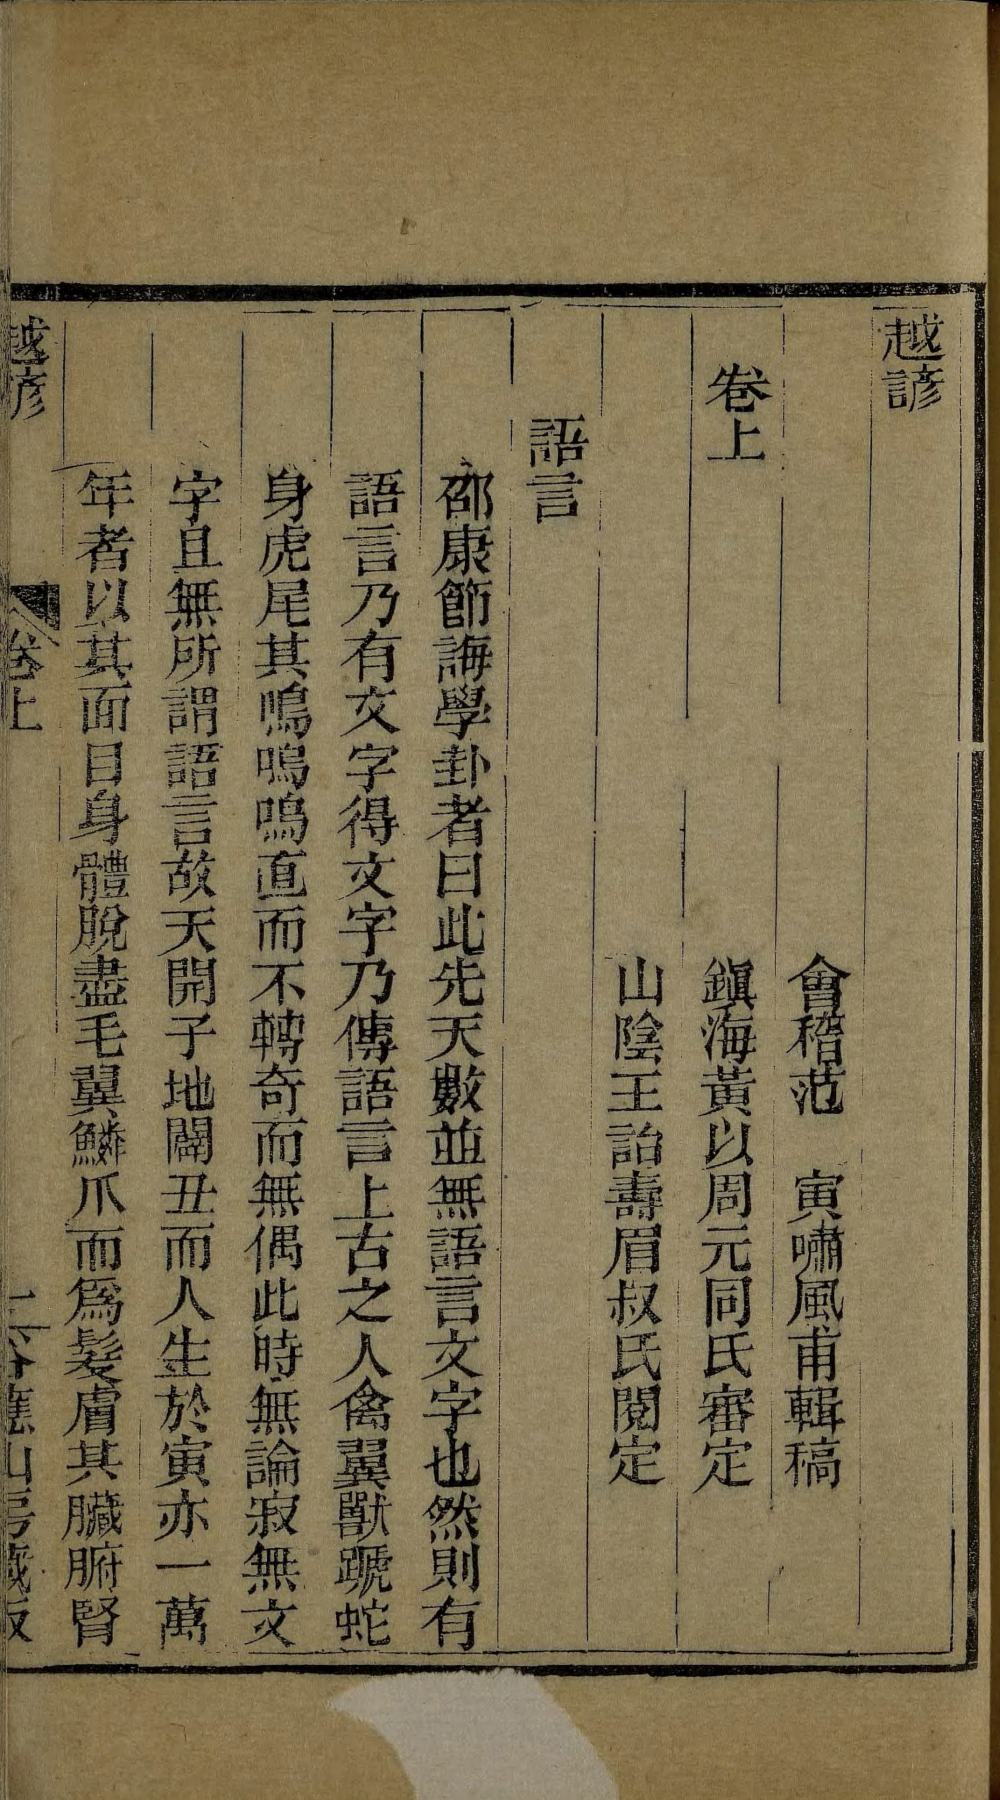 越諺
會稽范　寅嘯風甫輯稿
卷上
鎮海黃以周元同氏審定
山陰王詒壽眉叔氏閱定
語言
邵康節誨學卦者曰此先天數並無語言文字也然則有
語言乃有文字得文字乃傳語言上古之人禽翼獸蹏蛇
身虎尾其鳴嗚嗚直而不轉奇而無偶此時無論寂無文
字且無所謂語言故天開子地闢丑而人生於寅亦一萬
年者以其面目身體脫盡毛翼鱗爪而爲髮膚其臟腑腎
越諺
卷上